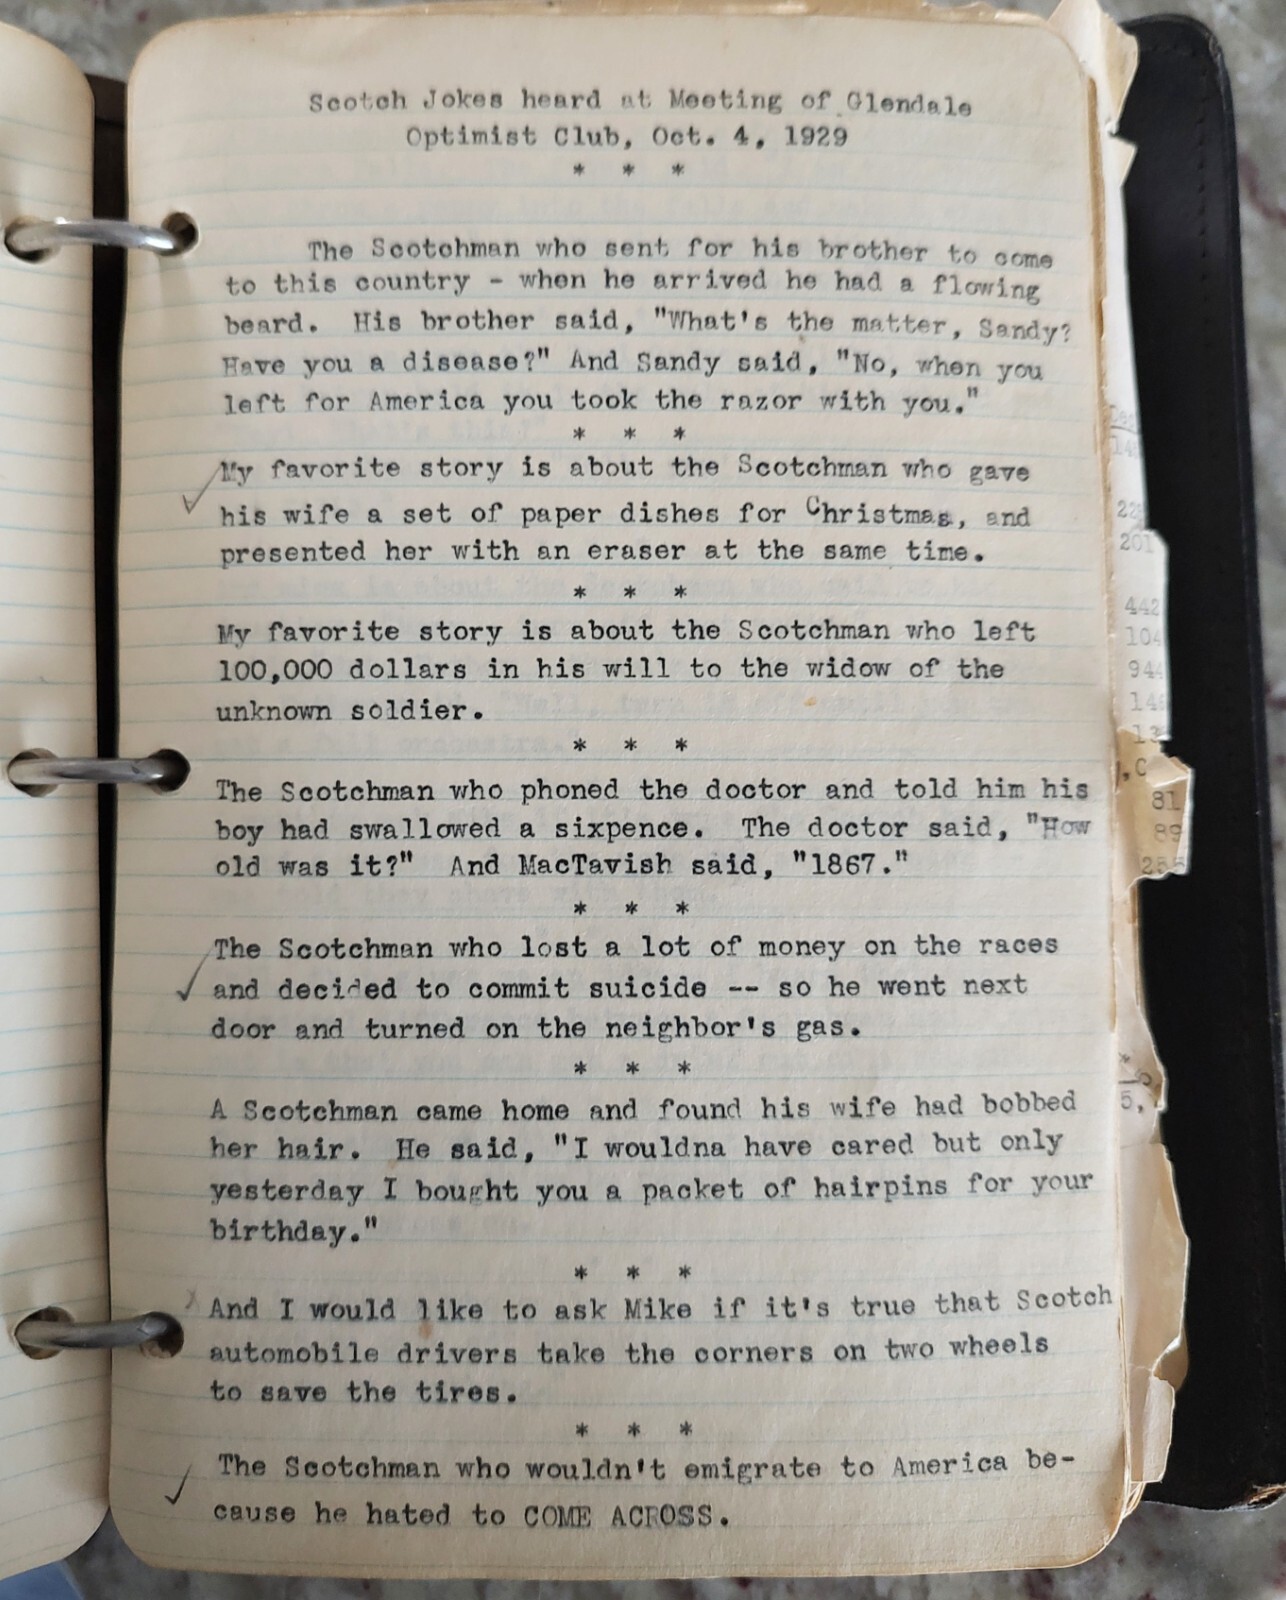 Scotch Jokes heard at Meeting of Glendale
Optimist Club, Oct. 4, 1929
* * *
The Scotchman who sent for his brother to come
to this country - when he arrived he had a flowing
beard. His brother said, "What's the matter, Sandy?
Have you a disease?" And Sandy said, "No, when you
left for America you took the razor with you."
* * *
My favorite story is about the Scotchman who gave
his wife a set of paper dishes for Christmas, and
presented her with an eraser at the same time.
* * *
My favorite story is about the Scotchman who left
100,000 dollars in his will to the widow of the
unknown soldier.
* * *
The Scotchman who phoned the doctor and told him his
boy had swallowed a sixpence. The doctor said, "How
old was it?" And MacTavish said, "1867."
* * *
The Scotchman who lost a lot of money on the races
and decided to commit suicide -- so he went next
door and turned on the neighbor's gas.
* * *
A Scotchman came home and found his wife had bobbed
her hair. He said, "I wouldna have cared but only
yesterday I bought you a packet of hairpins for your
birthday."
* * *
And I would like to ask Mike if it's true that Scotch
automobile drivers take the corners on two wheels
to save the tires.
* * *
The Scotchman who wouldn't emigrate to America be-
cause he hated to COME ACROSS.
201
442
104
944
81
89
255